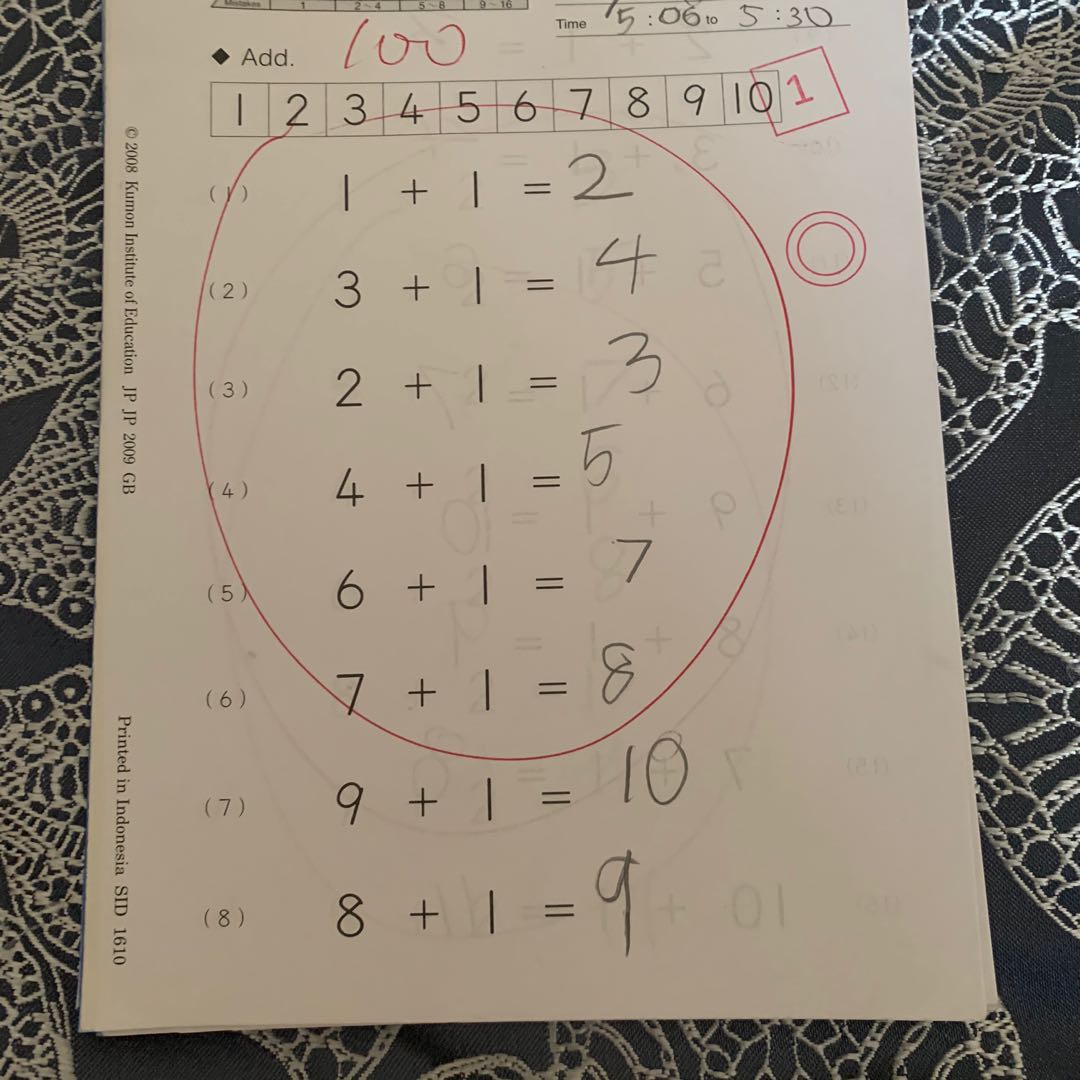 Mistakes 1 2~4 5~8 9~16
Time 5:06 to 5:30
◆ Add. 100
1 2 3 4 5 6 7 8 9 10 1
(1) 1 + 1 = 2
(2) 3 + 1 = 4
(3) 2 + 1 = 3
(4) 4 + 1 = 5
(5) 6 + 1 = 7
(6) 7 + 1 = 8
(7) 9 + 1 = 10
(8) 8 + 1 = 9
© 2008 Kumon Institute of Education JP JP 2009 GB
Printed in Indonesia SID 1610